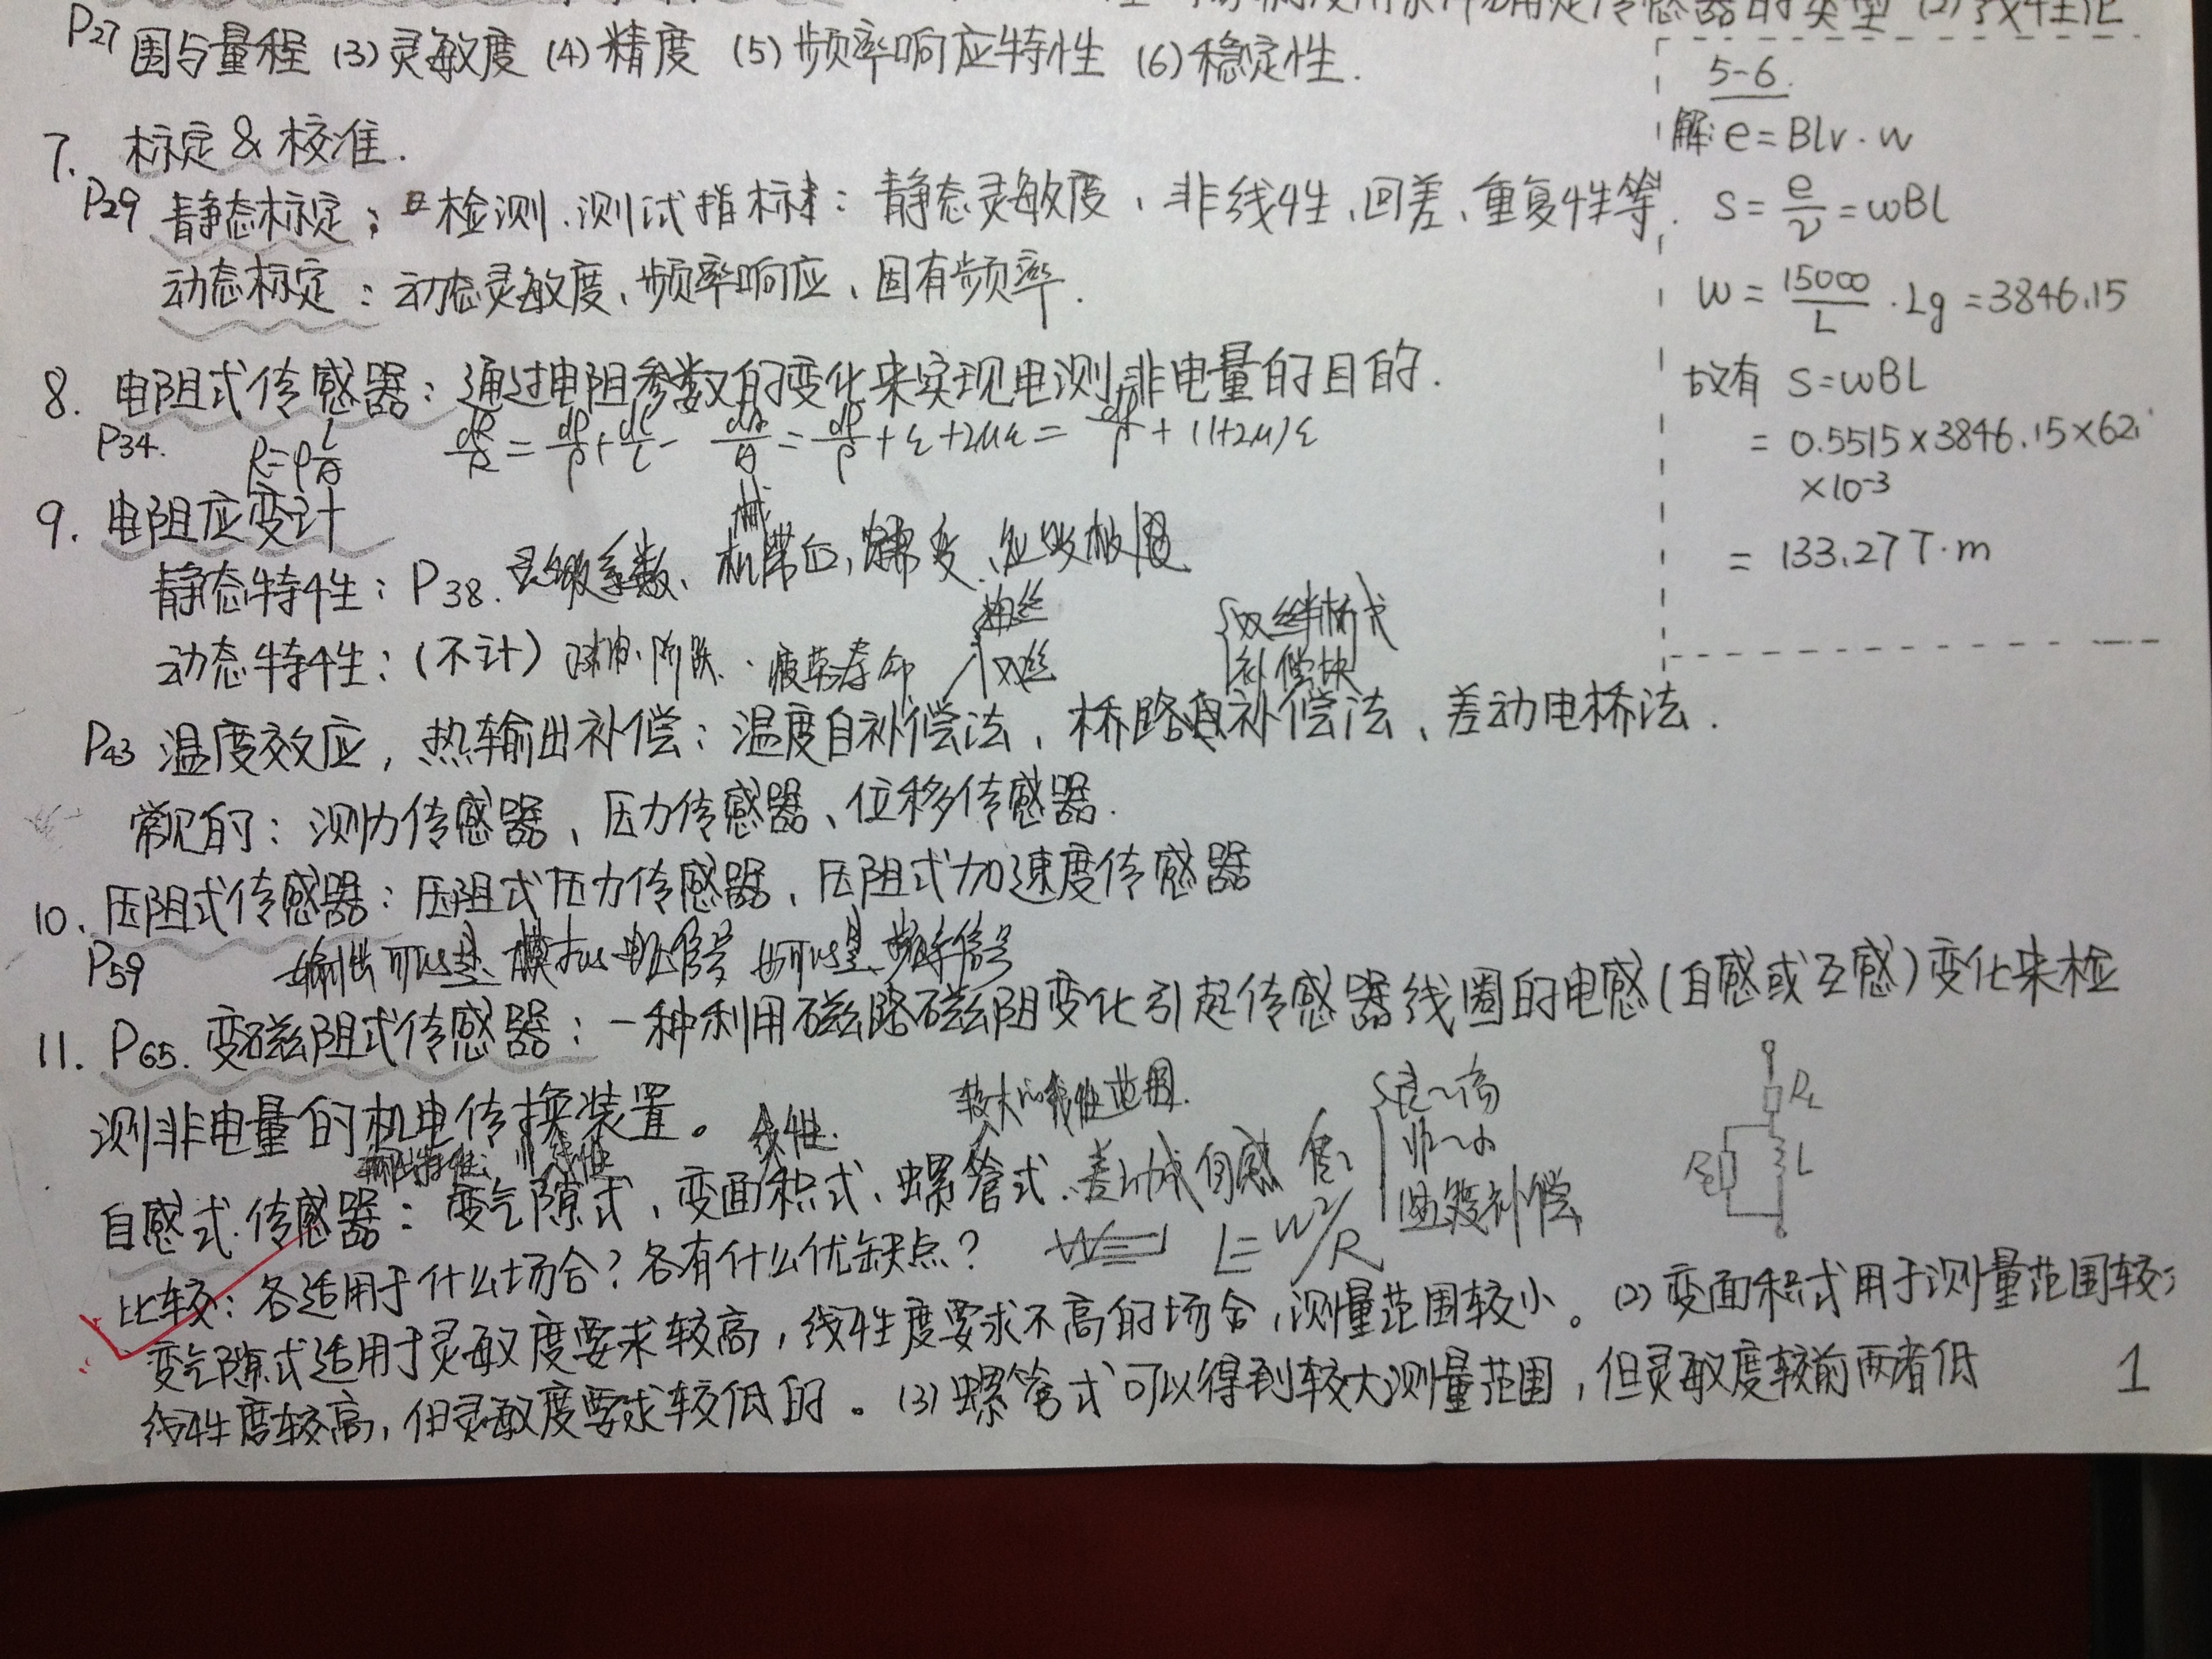 P27 围与量程 (3)灵敏度 (4)精度 (5)频率响应特性 (6)稳定性.
7. 标定 & 校准.
P29 静态标定: 检测.测试指标: 静态灵敏度、非线性、回差、重复性等.
动态标定: 动态灵敏度、频率响应、固有频率.
8. 电阻式传感器: 通过电阻参数的变化来实现电测非电量的目的.
P34. R=ρL/A dR/R = dρ/ρ + dL/L - dA/A = dρ/ρ + ε+2με = dρ/ρ + (1+2μ)ε
9. 电阻应变计
静态特性: P38. 灵敏系数、机械滞后、蠕变、应变极限
动态特性: (不计) 阶跃. 疲劳寿命
单丝
双丝
双丝半桥式
补偿块
P43 温度效应, 热输出补偿: 温度自补偿法、桥路补偿法、差动电桥法.
常见的: 测力传感器、压力传感器、位移传感器.
10. 压阻式传感器: 压阻式压力传感器、压阻式加速度传感器
P59 输出可以是模拟电压信号 也可以是频率信号
11. P65. 变磁阻式传感器: 一种利用磁路磁阻变化引起传感器线圈的电感(自感或互感)变化来检
测非电量的机电传换装置。
非线性
线性.
较大的线性范围.
自感式.传感器: 变气隙式、变面积式、螺管式. 差动式自感
灵~高
非~小
温度补偿
L=W²/R
比较: 各适用于什么场合? 各有什么优缺点?
变气隙式适用于灵敏度要求较高, 线性度要求不高的场合, 测量范围较小。(2) 变面积式用于测量范围较
线性度较高, 但灵敏度要求较低的。(3) 螺管式可以得到较大测量范围, 但灵敏度较前两者低
1
5-6.
解: e=Blv·w
S = e/v = wBl
W = 15000/L · Lg = 3846.15
故有 S=wBL
= 0.5515×3846.15×62.
×10⁻³
= 133.27 T·m
RL
L
Re